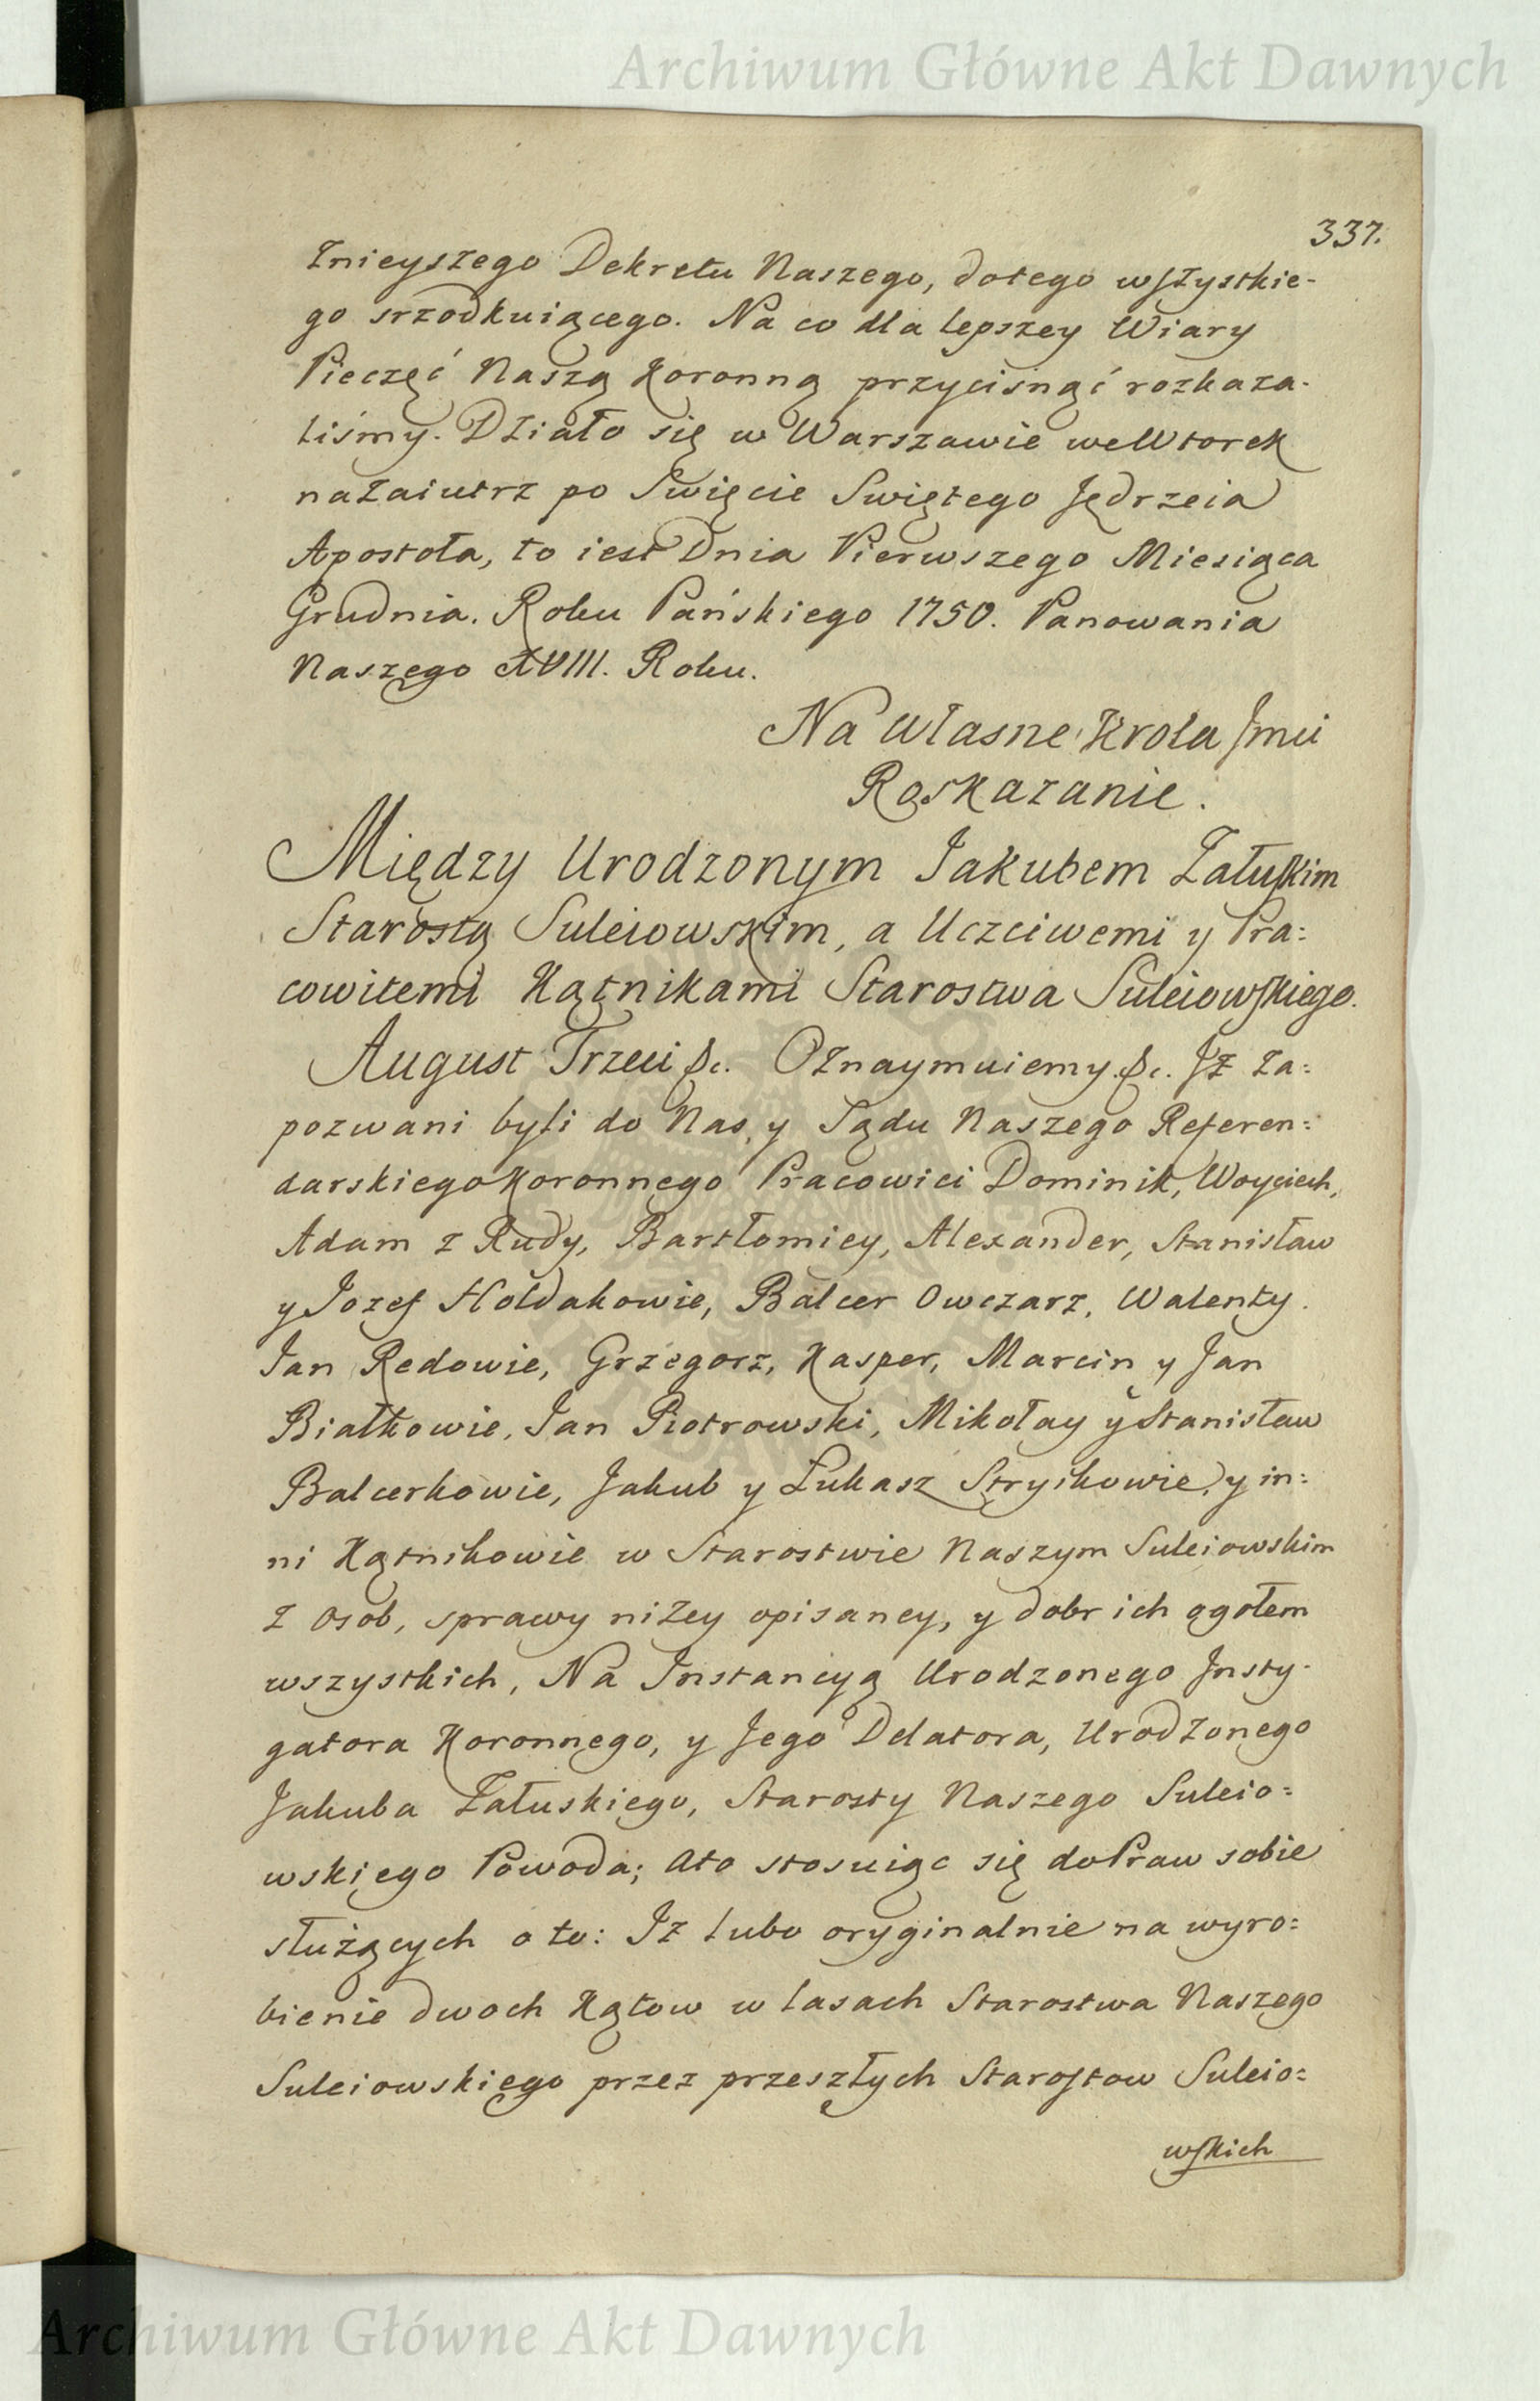 Archiwum Główne Akt Dawnych
337.
Znieyszego Dekretu Naszego, do tego wszystkie-
go srzodkuiącego. Na co dla lepszey Wiary
Pieczęć Naszą Koronną przycisnąć rozkaza-
liśmy. Działo się w Warszawie we Wtorek
nazaiutrz po Swięcie Swiętego Jędrzeia
Apostoła, to iest Dnia Pierwszego Miesiąca
Grudnia. Roku Pańskiego 1750. Panowania
Naszego XVIII. Roku.
Na Własne Krola Jmci
Roskazanie.
Między Urodzonym Jakubem Załuskim
Starostą Suleiowskim, a Uczciwemi y Pra:
cowitemi Kątnikami Starostwa Suleiowskiego.
August Trzeci &c. Oznaymuiemy &c. Jż za:
pozwani byli do Nas, y Sądu Naszego Referen:
darskiego Koronnego Pracowici Dominik, Woyciech,
Adam z Rudy, Bartłomiey, Alexander, Stanisław
y Jozef Hołdakowie, Balcer Owczarz, Walenty.
Jan Redowie, Grzegorz, Kasper, Marcin y Jan
Białkowie, Jan Piotrowski, Mikołay y Stanisław
Balcerkowie, Jakub y Łukasz Stryikowie, y in:
ni Kątnikowie w Starostwie Naszym Suleiowskim
z osob, sprawy niżey opisaney, y dobr ich ogołem
wszystkich, Na Jnstancyą Urodzonego Jnsty-
gatora Koronnego, y Jego Delatora, Urodzonego
Jakuba Załuskiego, Starosty Naszego Suleio:
wskiego Powoda; Ato stosuiąc się do Praw sobie
służących o to: Jż lubo oryginalnie na wyro:
bienie dwoch Kątow w lasach Starostwa Naszego
Suleiowskiego przez przeszłych Starostow Suleio:
wskich
Archiwum Główne Akt Dawnych